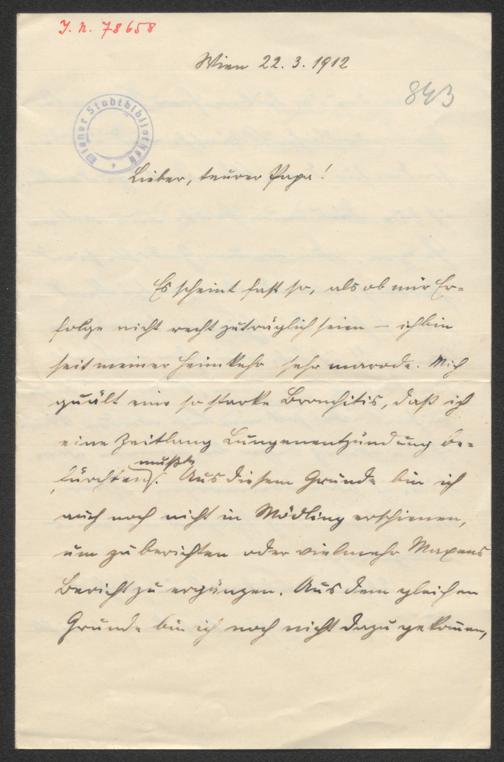 J. N. 78658
Wien 22. 3. 1912
843
Wiener Stadtbibliothek
Lieber, teurer Papa!
Es scheint fast so, als ob mir Er-
folge nicht recht zuträglich seien – ich bin
seit meiner Heimkehr sehr marode. Mich
quält eine so starke Bronchitis, daß ich
eine Zeitlang Lungenentzündung be-
fürchten mußte. Aus diesem Grunde bin ich
auch noch nicht in Mödling erschienen,
um zu berichten oder vielmehr Maxens
Bericht zu ergänzen. Aus dem gleichen
Grunde bin ich noch nicht dazu gekommen,